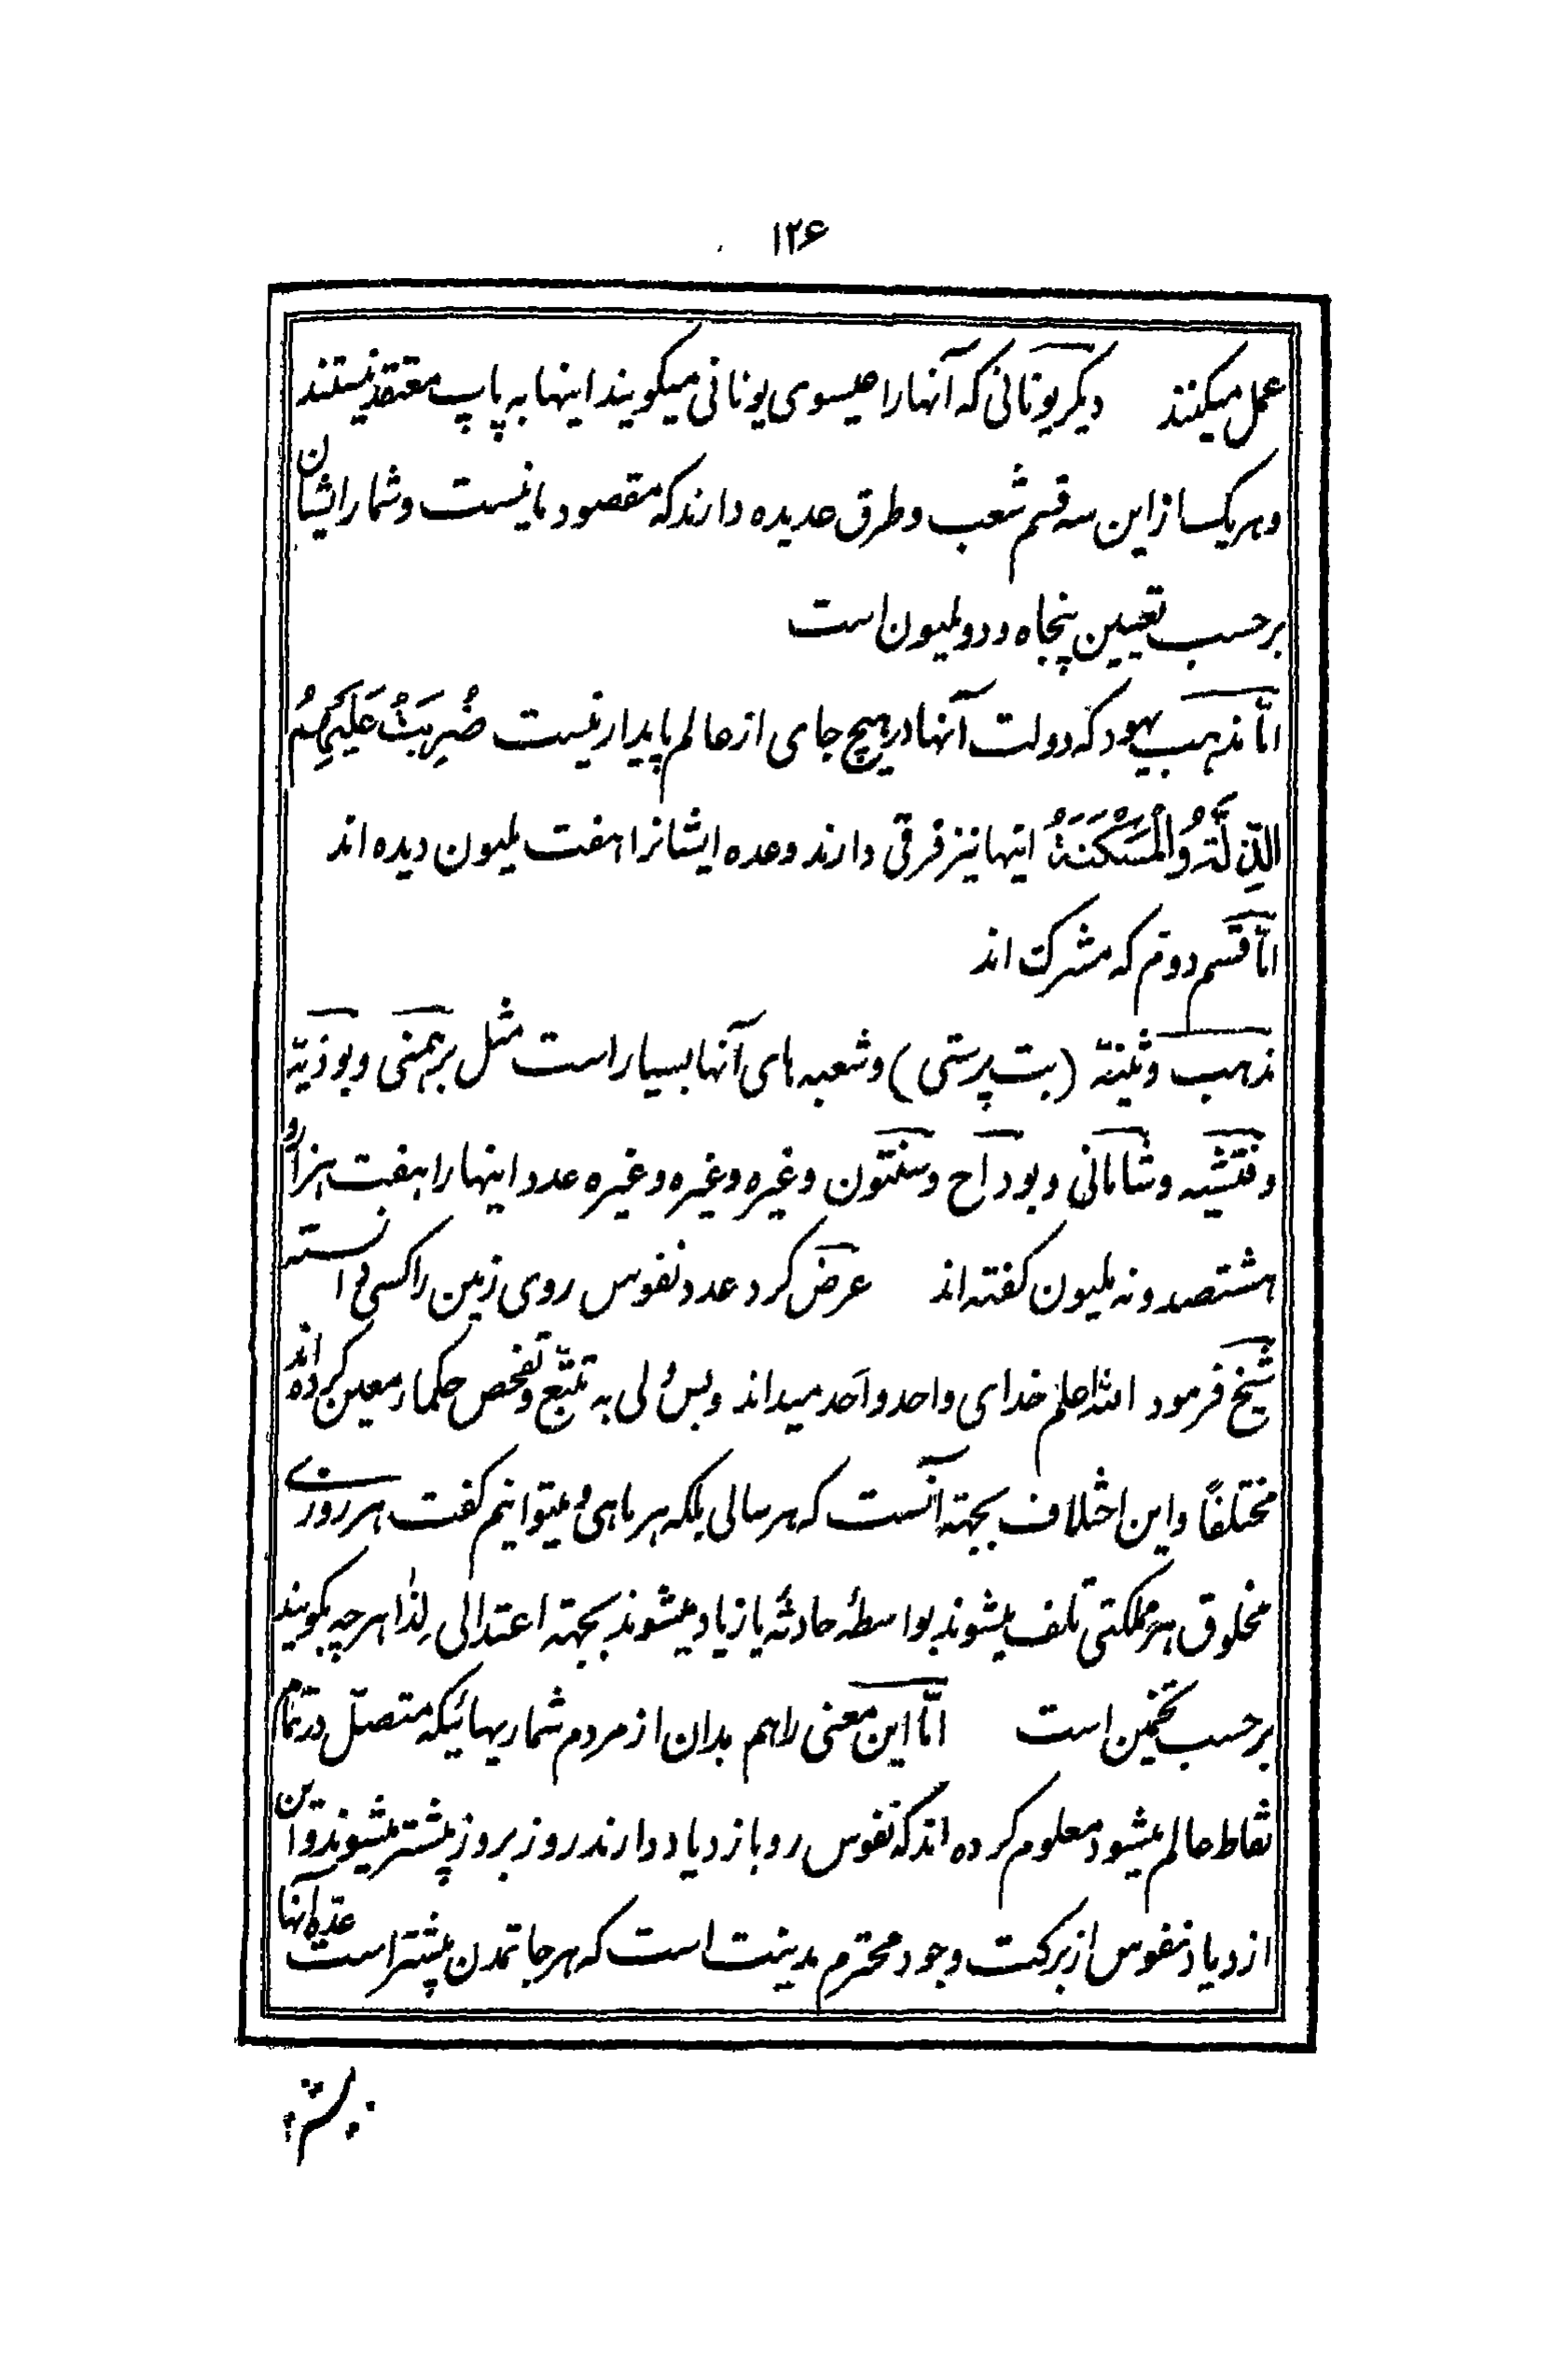 ۱۲۶
عمل میکنند دیکر یونانی که آنها را عیسوی یونانی میکویند اینها به پاپ معتقد نیستند
و هریک از این سه قسم شعب و طرق عدیده دارند که مقصود ما نیست و شمار ایشان
برحسب تعیین پنجاه و دو ملیون است
امّا مذهب یهود که دولت آنها در هیچ جای از عالم پایدار نیست ضُرِبَتْ عَلَیْهِمُ
الذِّلَّةُ وَالْمَسْکَنَةُ اینها نیز فرقی دارند و عده ایشانرا هفت ملیون دیده اند
امّا قسم دوّم که مشرک اند
مذهب وثنیّه (بت پرستی) و شعبه های آنها بسیار است مثل برهمنی و بوذیّه
و فتشیه و شامانی و بوداح و سنتون و غیره و غیره و غیره عدد اینها را هفت هزار و
هشتصد و نه ملیون کفته اند عرض کرد عدد نفوس روی زمین را کسی دانسته
شیخ فرمود الله اعلم خدای واحد و اَحد میداند و بس ولی به تتبّع و تفحص حکما معین کرده اند
مختلفاً و این اختلاف بجهته آنست که هر سالی بلکه هر ماهی و میتوانیم کفت هر روزی
مخلوق هر مملکتی تلف میشوند بواسطۀ حادثه یا زیاد میشوند بجهته اعتدالی لِذا هرچه بکویند
برحسب تخمین است امّا این معنی را هم بدان از مردم شماریهائیکه متصّل در تمام
نقاط عالم میشود معلوم کرده اند که نفوس رو بازدیاد دارند روز بروز بیشتر میشوند و این
ازدیاد نفوس از برکت وجود محترم مدینت است که هر جا تمدن بیشتر است عدّه آنها
بیشتر